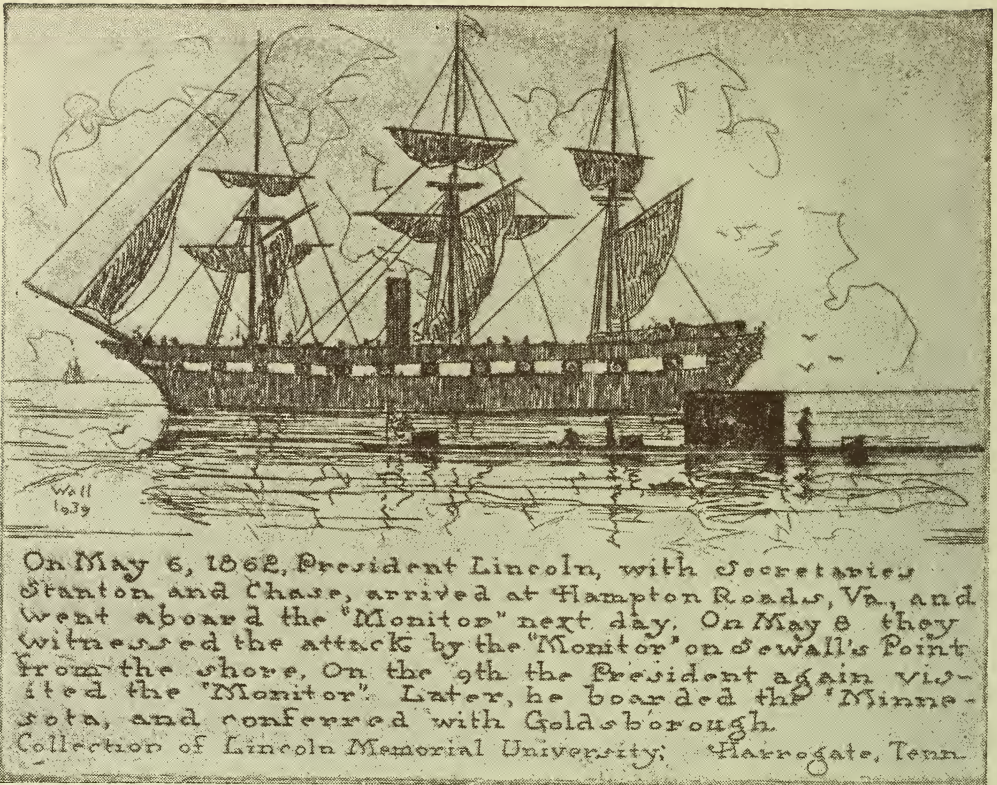 Wall
1939
On May 6, 1862, President Lincoln, with Secretaries
Stanton and Chase, arrived at Hampton Roads, Va., and
went aboard the "Monitor" next day. On May 8 they
witnessed the attack by the "Monitor" on Sewall's Point
from the shore. On the 9th the President again vis-
ited the "Monitor". Later, he boarded the "Minne-
sota, and conferred with Goldsborough.
Collection of Lincoln Memorial University; Harrogate, Tenn.